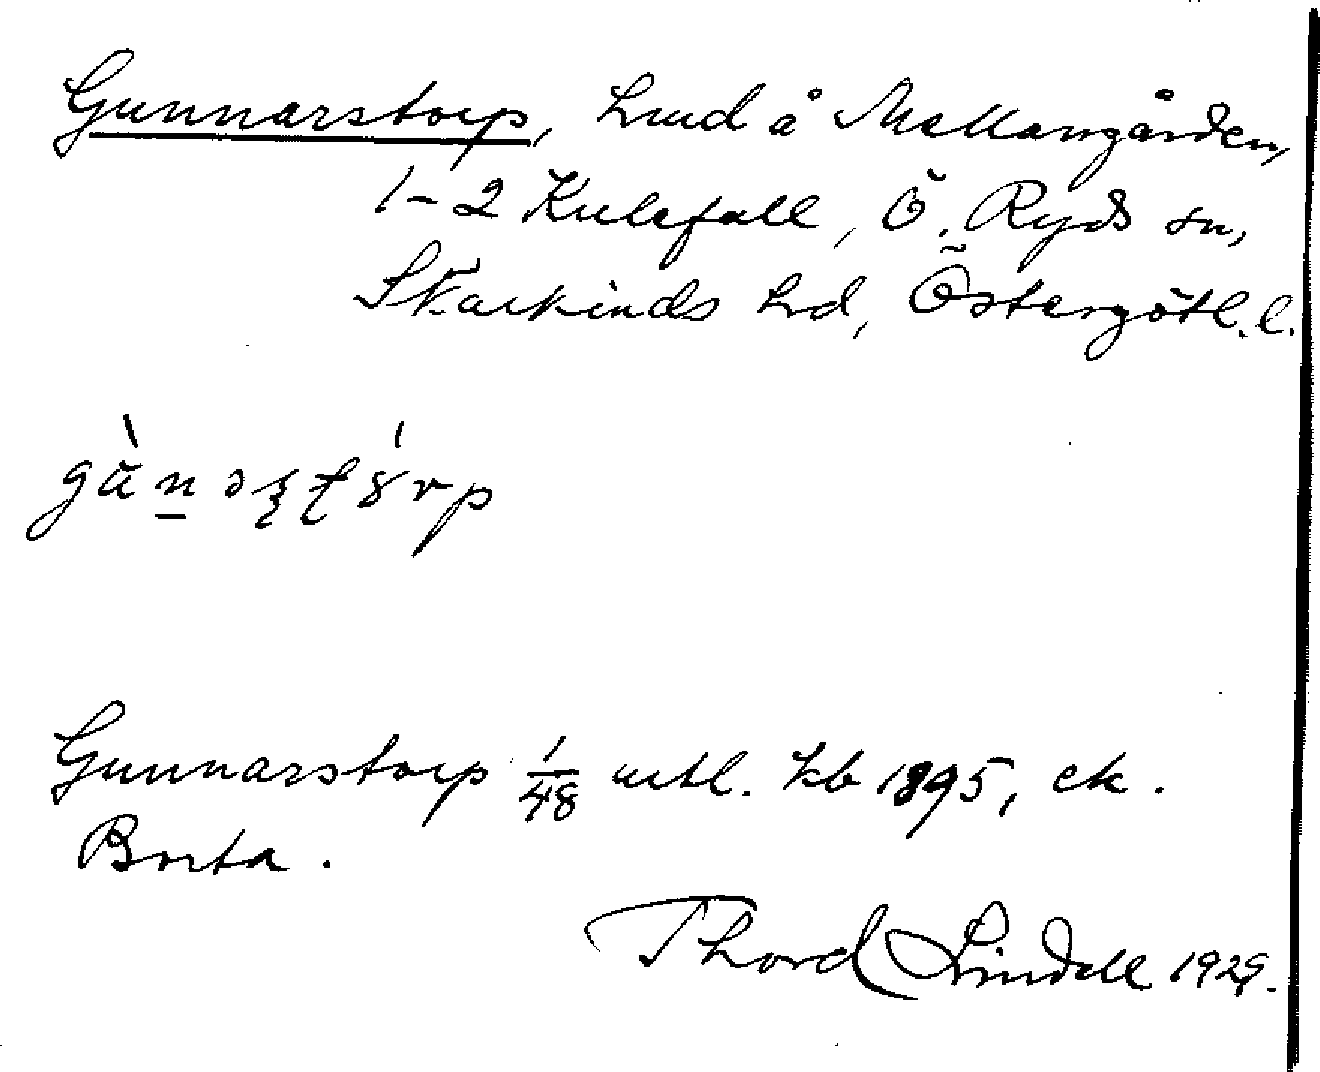 Gunnarstorp, hmd å Mellangården,
1-2 Kulefall, Ö. Ryds sn,
Skärkinds hd, Östergötl. l.
Gunnarstorp 1/48 mtl. kb 1895, ek.
Borta.
Thord Lindell 1929.